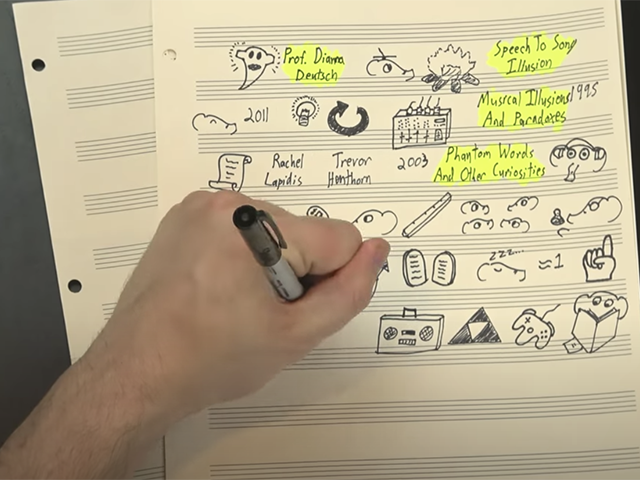 Prof. Dianna
Deutsch
Speech To Song
Illusion
2011
Musical Illusions
And Paradoxes
1995
Rachel
Lapidis
Trevor
Henthorn
2003
Phantom Words
And Other Curiosities
zzz...
≈1